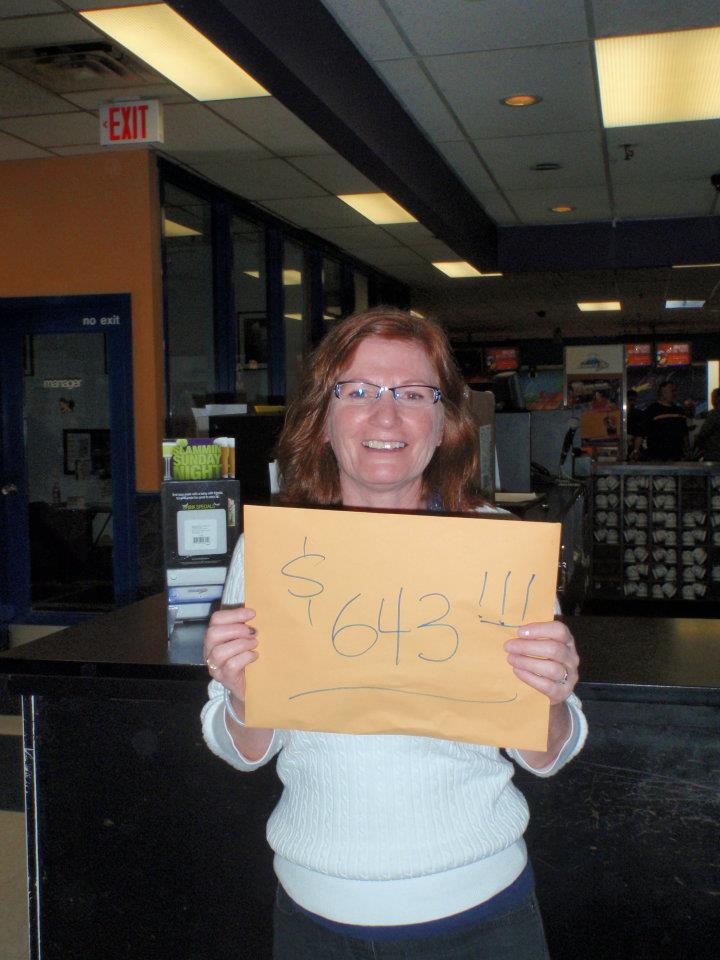 EXIT
no exit
manager
SLAMMIN'
SUNDAY
NIGHT
$643!!!